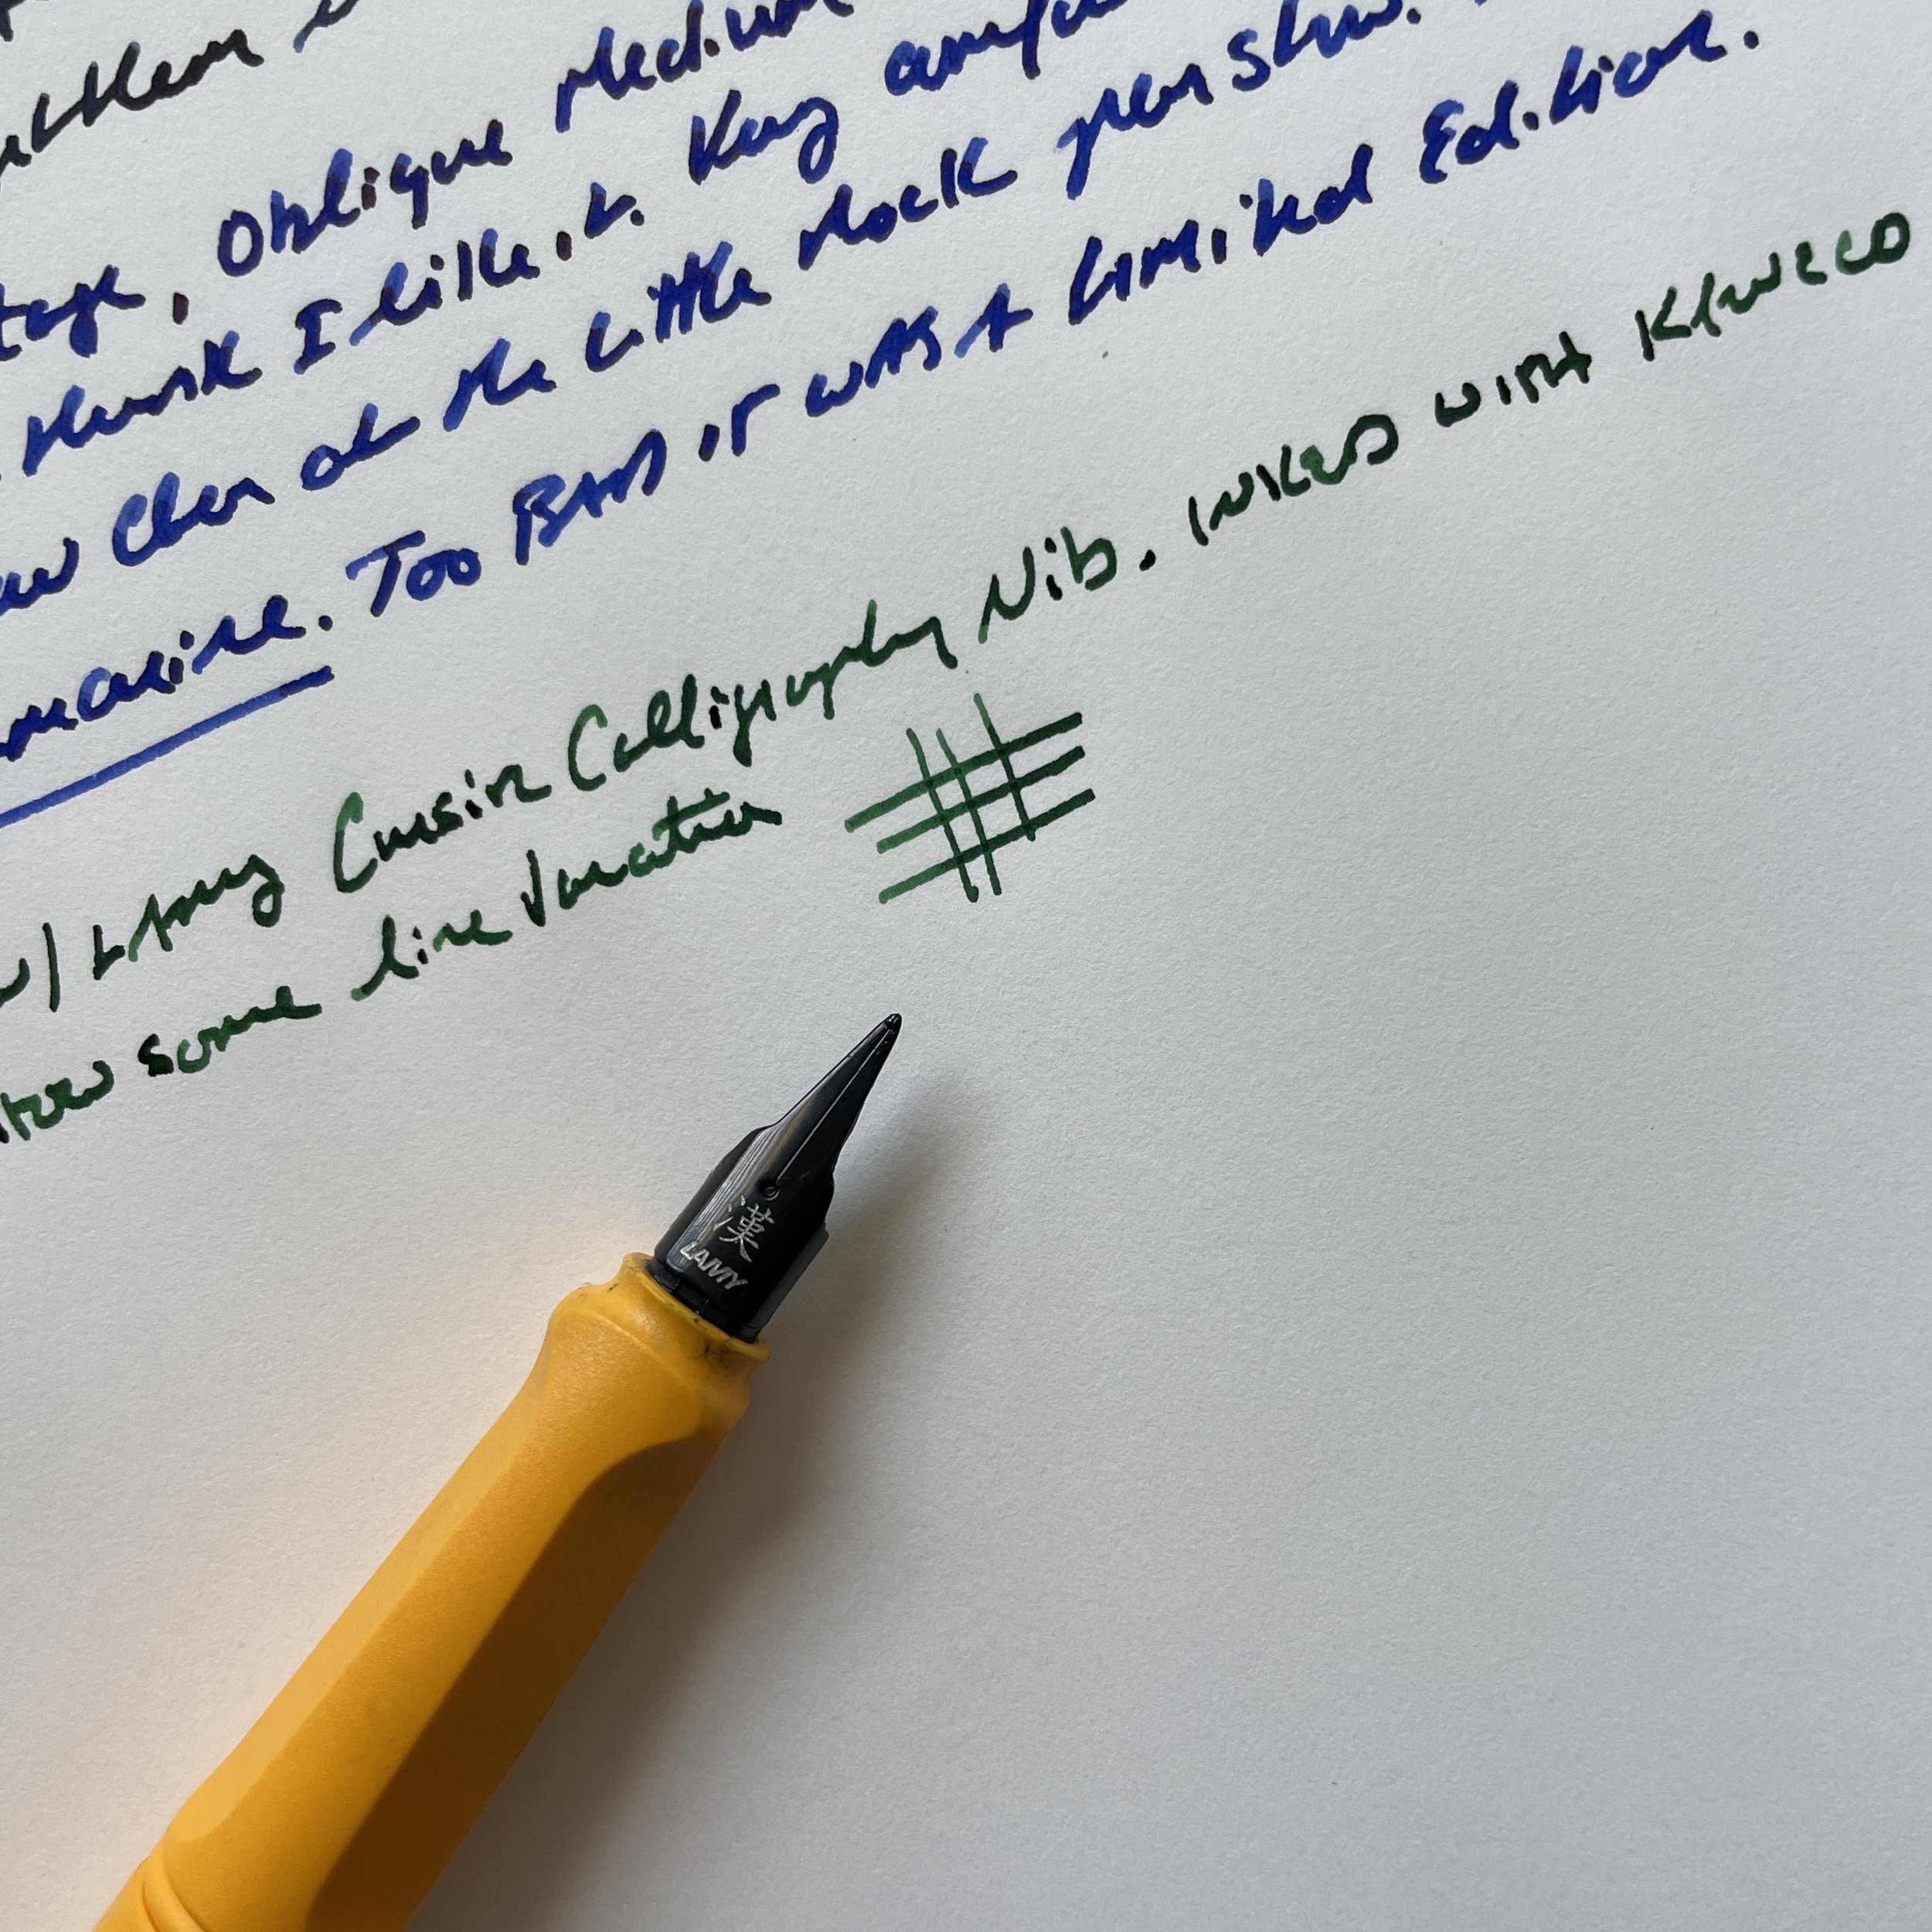 Oblique Medium
think I like it. Very comfor
at the Little Rock pen show.
marine. Too BAD iT wAS A Limited Edition.
w/ LAmy Cursive Calligraphy Nib. INKED WITH KAWECO
some line variation
漢
LAMY